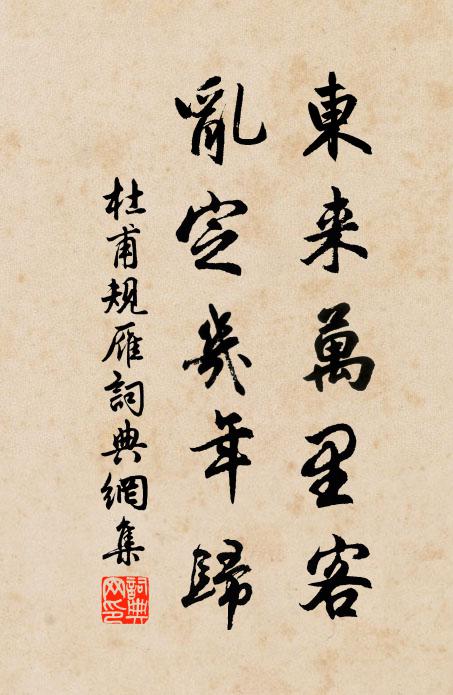 東来萬里客
亂定幾年歸
杜甫規雁詞典網集
詞典
网印